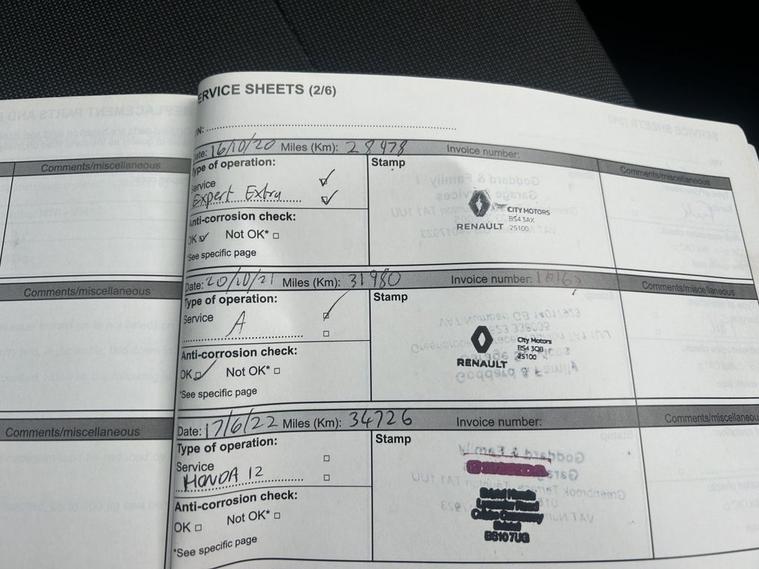 SERVICE SHEETS (2/6)
Date: 16/10/20 Miles (Km): 28978 Invoice number:
Comments/miscellaneous
Comments/miscellaneous
Type of operation:
Stamp
Service
Expert Extra
CITY MOTORS
BS4 3AX
RENAULT 25100
Anti-corrosion check:
OK Not OK*
See specific page
Date: 20/10/21 Miles (Km): 31980 Invoice number:
Comments/miscellaneous
Comments/miscellaneous
Type of operation:
Stamp
Service
A
City Motors
BS4 3QB
25100
RENAULT
Anti-corrosion check:
OK Not OK*
*See specific page
Date: 17/6/22 Miles (Km): 34726 Invoice number:
Comments/miscellaneous
Comments/miscellaneous
Type of operation:
Stamp
Service
HONDA 12
Anti-corrosion check:
OK Not OK*
BS10 7UG
*See specific page